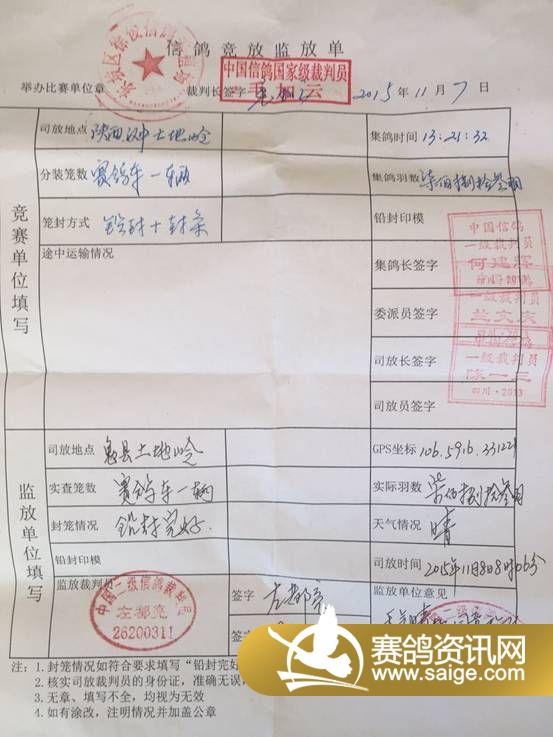 信鸽竞放监放单
中国信鸽国家级裁判员
举办比赛单位章 裁判长签字 2015年11月7日
竞赛单位填写
司放地点 陕西汉中土地岭 集鸽时间 13:21:32
分装笼数 赛鸽车一辆 集鸽羽数 柒佰捌拾叁羽
笼封方式 铅封+封条 铅封印模
途中运输情况 集鸽长签字
中国信鸽
一级裁判员
何建辉
委派员签字
一级裁判员
兰文庆
司放长签字
中国信鸽
一级裁判员
陈一三
四川·2013
司放员签字
监放单位填写
司放地点 勉县土地岭 GPS坐标
实查笼数 赛鸽车一辆 实际羽数 柒佰捌拾叁羽
封笼情况 铅封完好. 天气情况 晴
铅封印模 司放时间 2015年11月8日8时06分
监放裁判员 签字 左都亮 监放单位意见
中国二级信鸽裁判员
左都亮
26200311
签
注:1.封笼情况如符合要求填写“铅封完好
2.核实司放裁判员的身份证,准确无误,
3.无章、填写不全,均视为无效
4.如有涂改,注明情况并加盖公章
赛鸽资讯网
www.saige.com